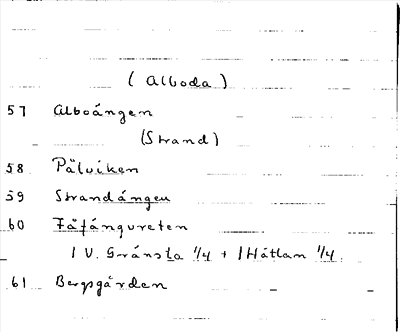 (Alboda)
57 Alboängen
(Strand)
58 Pålviken
59 Strandängen
60 Fäfångvreten
1 V. Gränsta 1/4 + 1 Håtlam 1/4.
61 Bergsgården